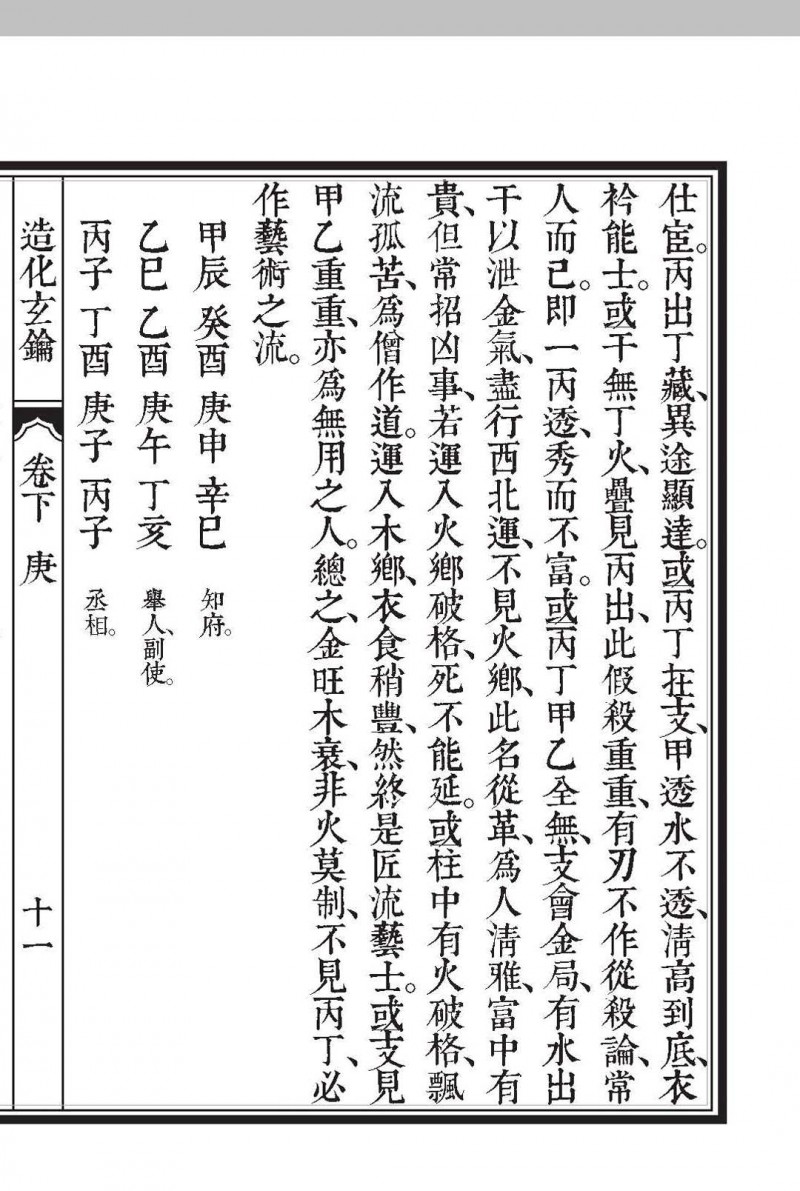 仕宦。丙出丁藏、異途顯達。或丙丁在支、甲透水不透、清高到底、衣
衿能士。或干無丁火、疊見丙出、此假殺重重、有刃不作從殺論、常
人而已。即一丙透、秀而不富。或丙丁甲乙全無、支會金局、有水出
干以泄金氣、盡行西北運、不見火鄉、此名從革、爲人清雅、富中有
貴、但常招凶事、若運入火鄉破格、死不能延。或柱中有火破格、飄
流孤苦、爲僧作道。運入木鄉、衣食稍豐、然終是匠流藝士。或支見
甲乙重重、亦爲無用之人。總之、金旺木衰、非火莫制、不見丙丁、必
作藝術之流。
甲辰 癸酉 庚申 辛巳 知府。
乙巳 乙酉 庚午 丁亥 舉人、副使。
丙子 丁酉 庚子 丙子 丞相。
造化玄鑰 卷下 庚 十一